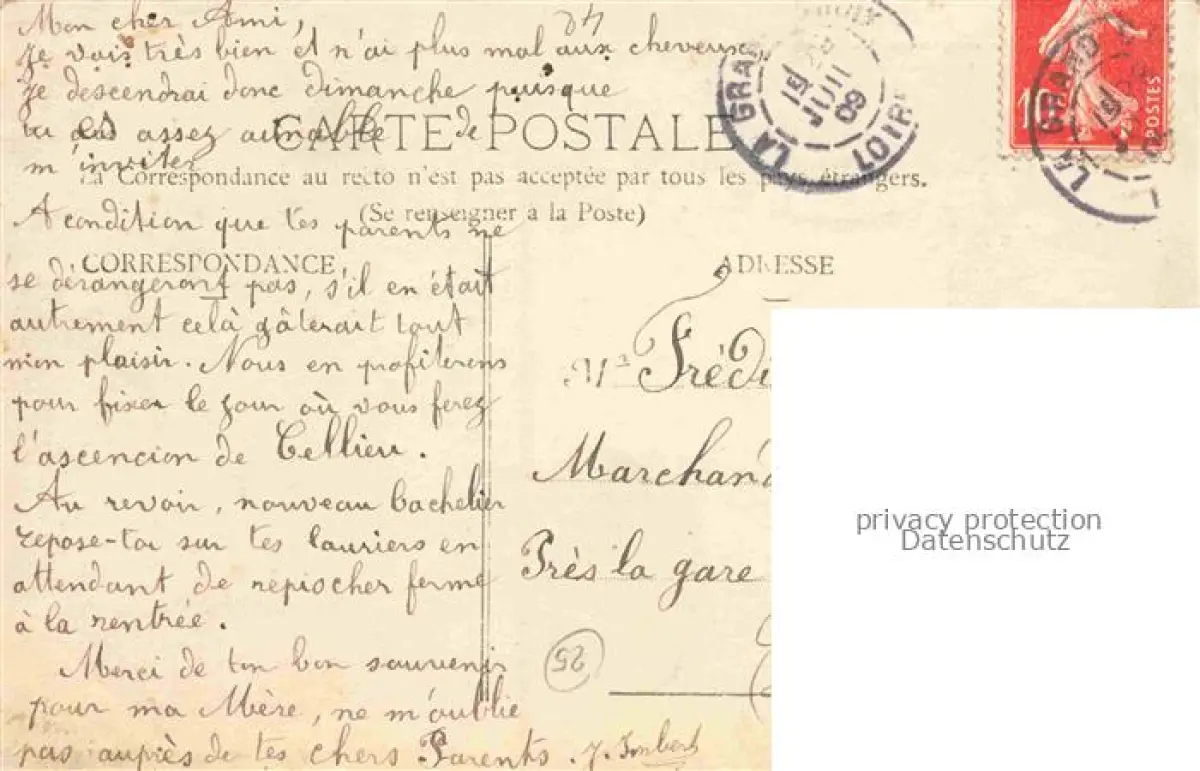 Mon cher Ami,
je vais très bien et n'ai plus mal aux cheveux,
je descendrai donc dimanche puisque
tu as assez aimable de
m'inviter
CARTE POSTALE
La Correspondance au recto n'est pas acceptée par tous les pays étrangers.
(Se renseigner a la Poste)
A condition que tes parents ne
se dérangeront pas, s'il en était
autrement celà gâterait tout
mon plaisir. Nous en profiterons
pour fixer le jour où vous ferez
l'ascencion de Cellieu.
Au revoir, nouveau bachelier
repose-toi sur tes lauriers en
attendant de repiocher ferme
à la rentrée.
Merci de ton bon souvenir
pour ma Mère, ne m'oublie
pas auprès de tes chers Parents. J. Imbert
CORRESPONDANCE
ADRESSE
Mr Frédé
Marchand
Près la gare
25
LA GRAND
LOIRE
JUIL
09
LA GRAND
POSTES
privacy protection
Datenschutz